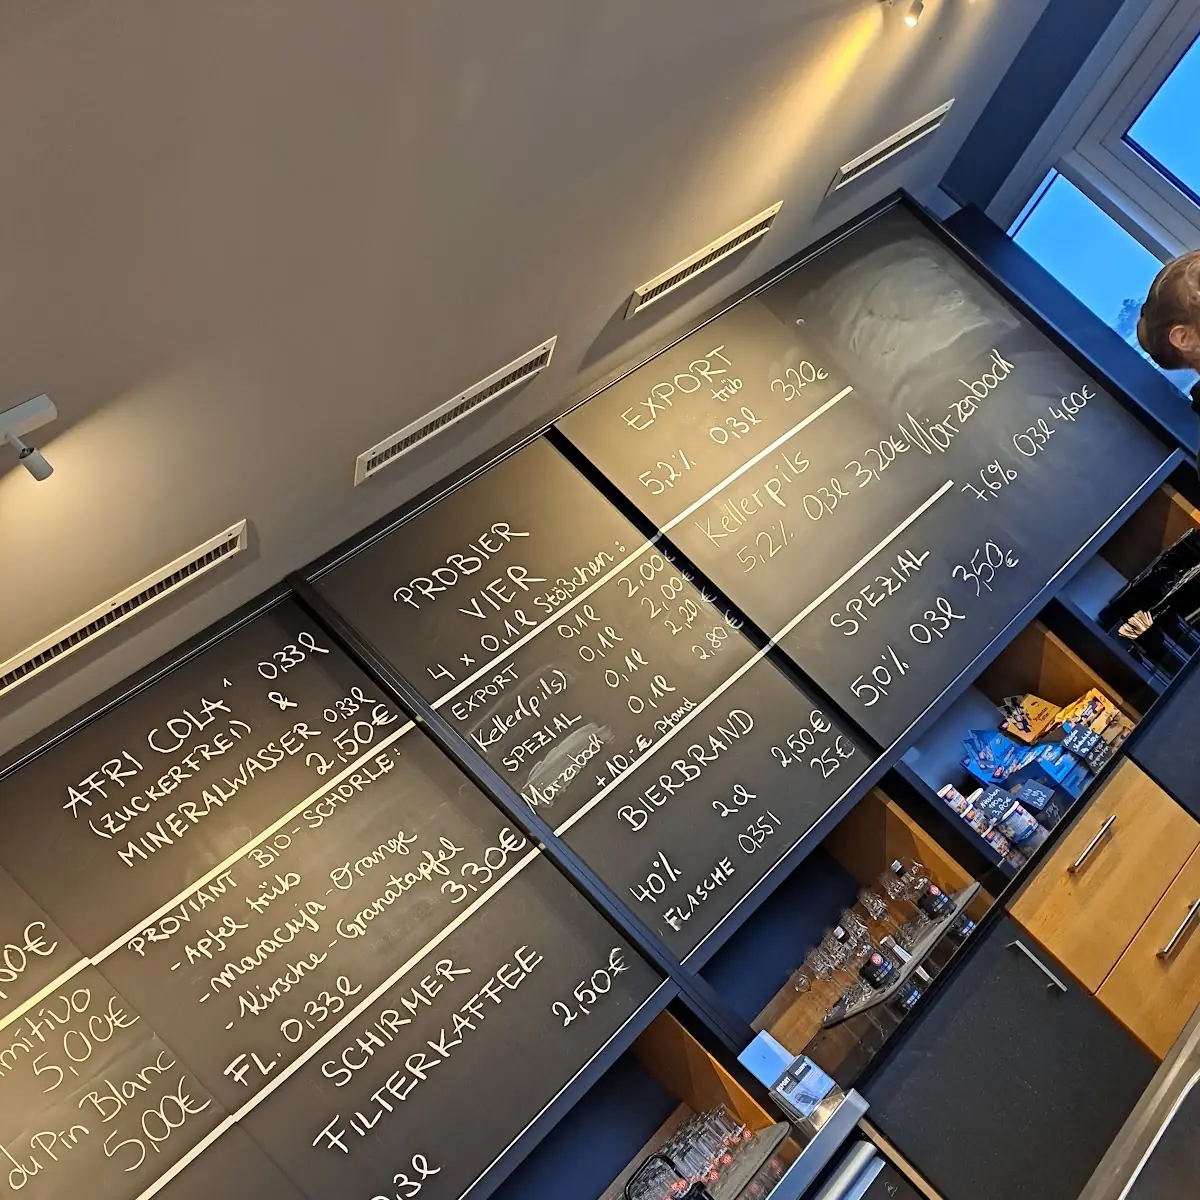 00€
5,00€
du Pin Blanc
5,00€
AFRI COLA 0,33l
(ZUCKERFREI) &
MINERALWASSER 0,33l
2,50€
PROVIANT BIO-SCHORLE:
- Apfel trüb
- Maracuja - Orange
- Kirsche - Granatapfel
FL. 0,33l 3,30€
SCHIRMER
FILTERKAFFEE
2,50€
PROBIER
VIER
4 x 0,1l Stößchen:
EXPORT 0,1l 2,00€
Keller(pils) 0,1l 2,00€
SPEZIAL 0,1l 2,20€
Märzenbock 0,1l 2,80€
+10,-€ Pfand
BIERBRAND
40% 2cl 2,50€
FLASCHE 0,35l 25€
EXPORT
trüb
5,2% 0,3l 3,20€
Kellerpils
5,2% 0,3l 3,20€
SPEZIAL
5,0% 0,3l 3,50€
Märzenbock
7,6% 0,3l 4,60€